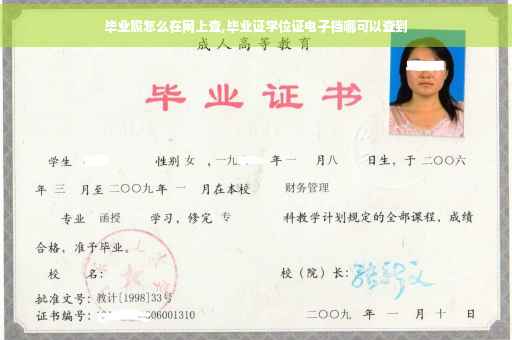 毕业照怎么在网上查,毕业证学位证电子档哪可以查到
成人高等教育
毕业证书
学生 性别 女 ,一九 年一 月八 日生，于二〇〇六
年 三 月至二〇〇九年 一 月在本校 财务管理
专业 函授 学习，修完 专 科教学计划规定的全部课程，成绩
合格，准予毕业。
校 名： 校（院）长：
批准文号：教计[1998]33号
证书编号： 06001310 二〇〇九 年 一 月 十 日